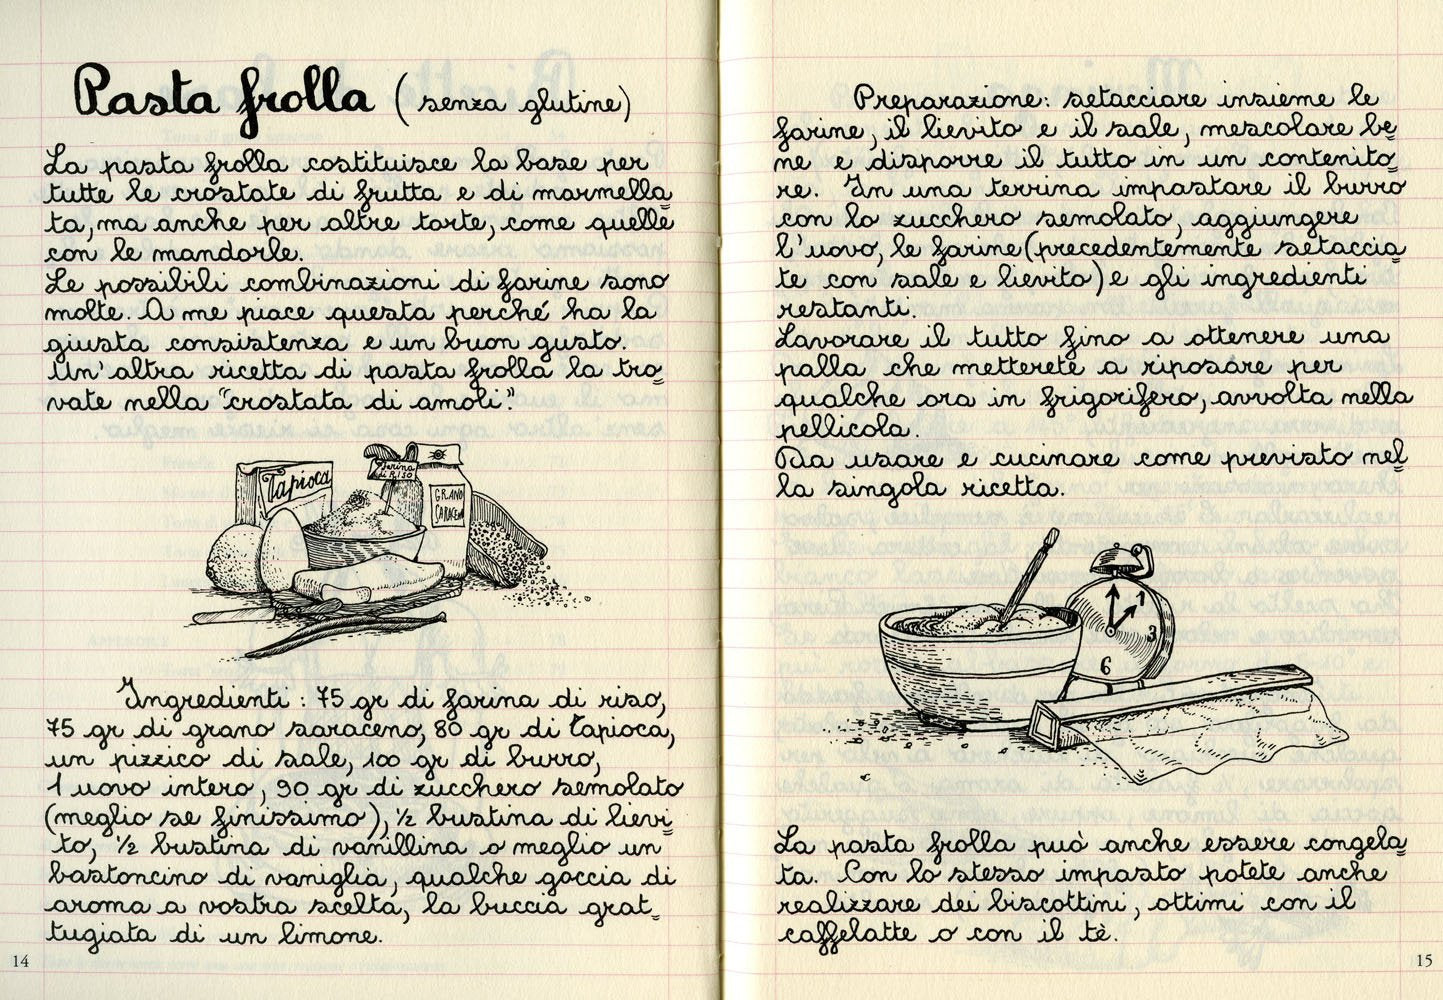 Pasta frolla (senza glutine)
La pasta frolla costituisce la base per
tutte le crostate di frutta e di marmella=
ta, ma anche per altre torte, come quelle
con le mandorle.
Le possibili combinazioni di farine sono
molte. A me piace questa perché ha la
giusta consistenza e un buon gusto.
Un'altra ricetta di pasta frolla la tro=
vate nella "crostata di amoli".
Tapioca
farina
di RISO
GRANO
SARACENO
Ingredienti: 75 gr di farina di riso,
75 gr di grano saraceno, 80 gr di tapioca,
un pizzico di sale, 100 gr di burro,
1 uovo intero, 90 gr di zucchero semolato
(meglio se finissimo), 1/2 bustina di lievi=
to, 1/2 bustina di vanillina o meglio un
bastoncino di vaniglia, qualche goccia di
aroma a vostra scelta, la buccia grat=
tugiata di un limone.
14
Preparazione: setacciare insieme le
farine, il lievito e il sale, mescolare be=
ne e disporre il tutto in un contenito=
re. In una terrina impastare il burro
con lo zucchero semolato, aggiungere
l'uovo, le farine (precedentemente setaccia=
te con sale e lievito) e gli ingredienti
restanti.
Lavorare il tutto fino a ottenere una
palla che metterete a riposare per
qualche ora in frigorifero, avvolta nella
pellicola.
Da usare e cucinare come previsto nel=
la singola ricetta.
1
3
6
La pasta frolla può anche essere congela=
ta. Con lo stesso impasto potete anche
realizzare dei biscottini, ottimi con il
caffelatte o con il tè.
15